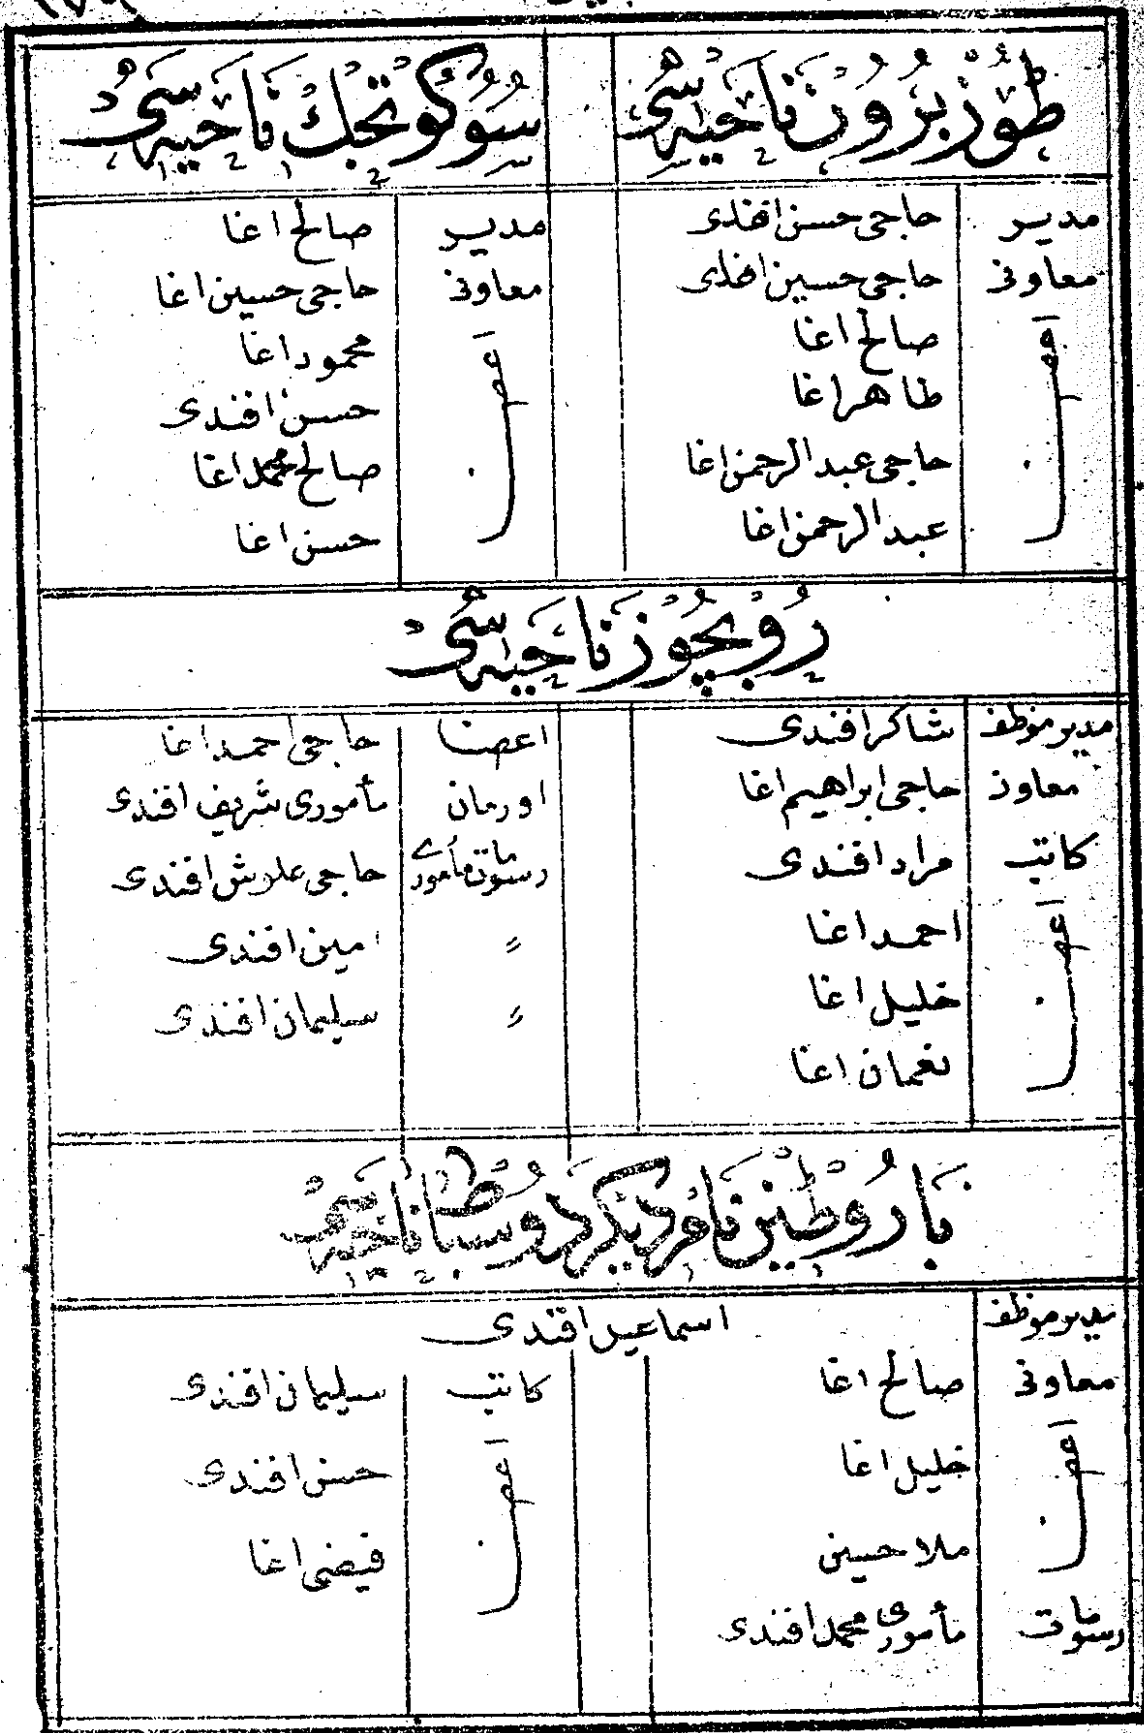 طوزبرون ناحیه‌سی
مدیر حاجی حسن افندی
معاونی حاجی حسین افندی
اعضا صالح اغا
طاهر اغا
حاجی عبد الرحمن اغا
عبد الرحمن اغا
سوکوتجك ناحیه‌سی
مدیر صالح اغا
معاونی حاجی حسین اغا
اعضا محمود اغا
حسن افندی
صالح محمد اغا
حسن اغا
روبچوز ناحیه‌سی
مدیر موظف شاکر افندی
معاون حاجی ابراهیم اغا
کاتب مراد افندی
اعضا احمد اغا
خلیل اغا
نعمان اغا
اعضا حاجی احمد اغا
اورمان مأموری شریف افندی
رسومات مأموری حاجی علوش افندی
〃 امین افندی
〃 سلیمان افندی
باروطین نام دیکر دوسپاط ناحیه‌سی
مدیر موظف اسماعیل افندی
معاونی صالح اغا
اعضا خلیل اغا
ملا حسین
رسومات مأموری محمد افندی
کاتب سلیمان افندی
اعضا حسن افندی
فیضی اغا